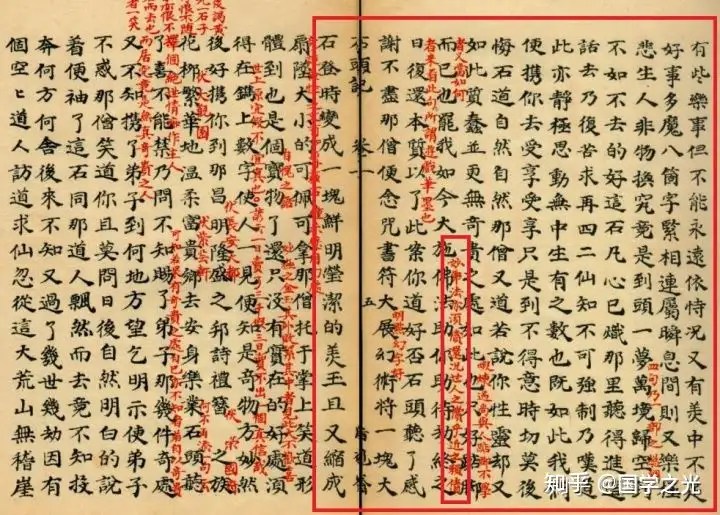 有些樂事但不能永遠依恃况又有美中不足
好事多魔八箇字緊相連屬瞬息間則又樂極
四句乃一部之總綱
悲生人非物換究竟是到頭一夢萬境歸空
不如不去的好這石凡心已熾那里聽得進這
話去乃復苦求再四二仙知不可強制乃嘆道
此亦靜極思動無中生有之數也既如此我們
便携你去受享受享只是到不得意時切莫後
悔石道自然自然那僧又道若說你性靈却又
如此質蠢並更無奇貴之處如此也只好踮脚
而已也罷我如今大施佛法助你助待劫終之
日後還本質以了此案你道好否石頭聽了感
謝不盡那僧便念咒書符大展幻術將一塊大
明點幻字好
石頭記 卷一 五
石登時變成一塊鮮明瑩潔的美玉且又縮成
扇墜大小的可佩可拿那僧托于掌上笑道形
自愧之語
體到也是個寶物了還只没有實在的好處須
得在鐫上數字使人一見便知是奇物方妙然
伏長安大都
後好携你到那昌明隆盛之邦詩禮簪纓之族
伏榮國府
伏大觀園
花柳繁華地温柔富貴鄉去安身樂業石頭聽
伏紫芸軒
了喜不能禁乃問不知賜了弟子那幾件奇處
又不知携了弟子到何地方望乞明示使弟子
不惑那僧笑道你且莫問日後自然明白的說
着便袖了這石同那道人飄然而去竟不知投
奔何方何舍後來不知又過了幾世幾劫因有
個空空道人訪道求仙忽從這大荒山無稽崖
知乎 @国学之光